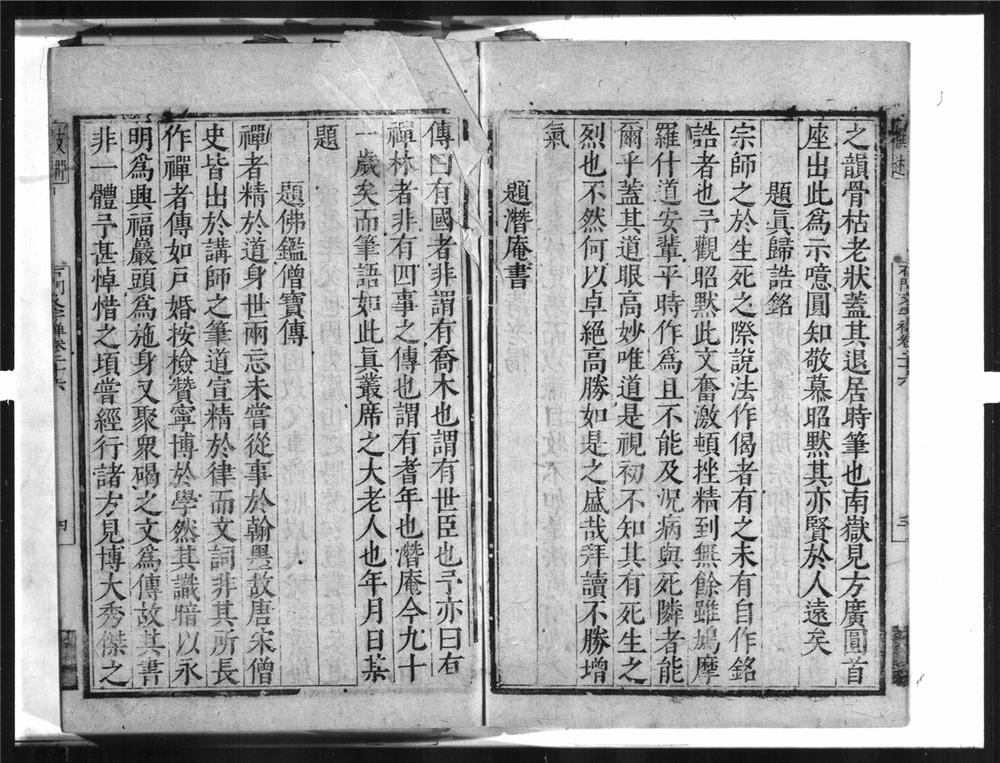 之韻骨枯老狀蓋其退居時筆也南嶽見方廣圓首
座出此為示噫圓知敬慕昭默其亦賢於人遠矣
題眞歸誥銘
宗師之於生死之際說法作偈者有之未有自作銘
誥者也予觀昭默此文奮激頓挫精到無餘雖鳩摩
羅什道安輩平時作為且不能及況病與死隣者能
爾乎蓋其道眼高妙唯道是視初不知其有死生之
烈也不然何以卓絕高勝如是之盛哉拜讀不勝增
氣
題潛庵書
傳曰有國者非謂有喬木也謂有世臣也予亦曰有
禪林者非有四事之傳也謂有耆年也潛庵今九十
一歲矣而筆語如此眞叢席之大老人也年月日某
題
題佛鑑僧寶傳
禪者精於道身世兩忘未嘗從事於翰墨故唐宋僧
史皆出於講師之筆道宣精於律而文詞非其所長
作禪者傳如戶婚按檢贊寧博於學然其識暗以永
明為興福巖頭為施身又聚衆碣之文為傳故其書
非一體予甚悼惜之頃嘗經行諸方見博大秀傑之